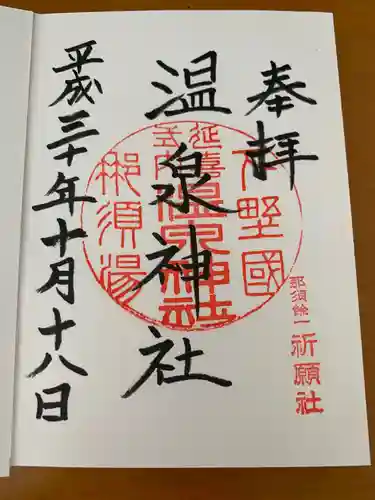 奉拝
下野國
延喜式内
温泉神社
那須湯
温泉神社
那須餘一
祈願社
平成三十年十月十八日